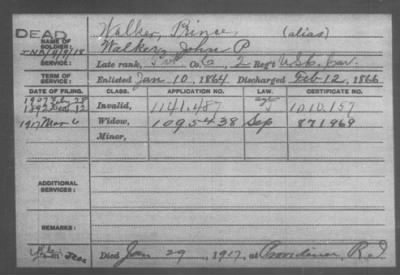 DEAD
Walker, Prince (alias)
NAME OF SOLDIER:
Walker, John P.
SERVICE:
Late rank, Pvt. Co. C, 2 Reg't U.S.C. Cav.
TERM OF SERVICE:
Enlisted Jan. 10, 1864 Discharged Feb. 12, 1866
DATE OF FILING. CLASS. APPLICATION NO. LAW. CERTIFICATE NO.
Invalid, 1141.487 1010.157
1917 Mar 6 Widow, 1095438 Sep 871969
Minor,
ADDITIONAL SERVICES:
REMARKS:
Died Jan 29, 1917, at Providence, R.I.